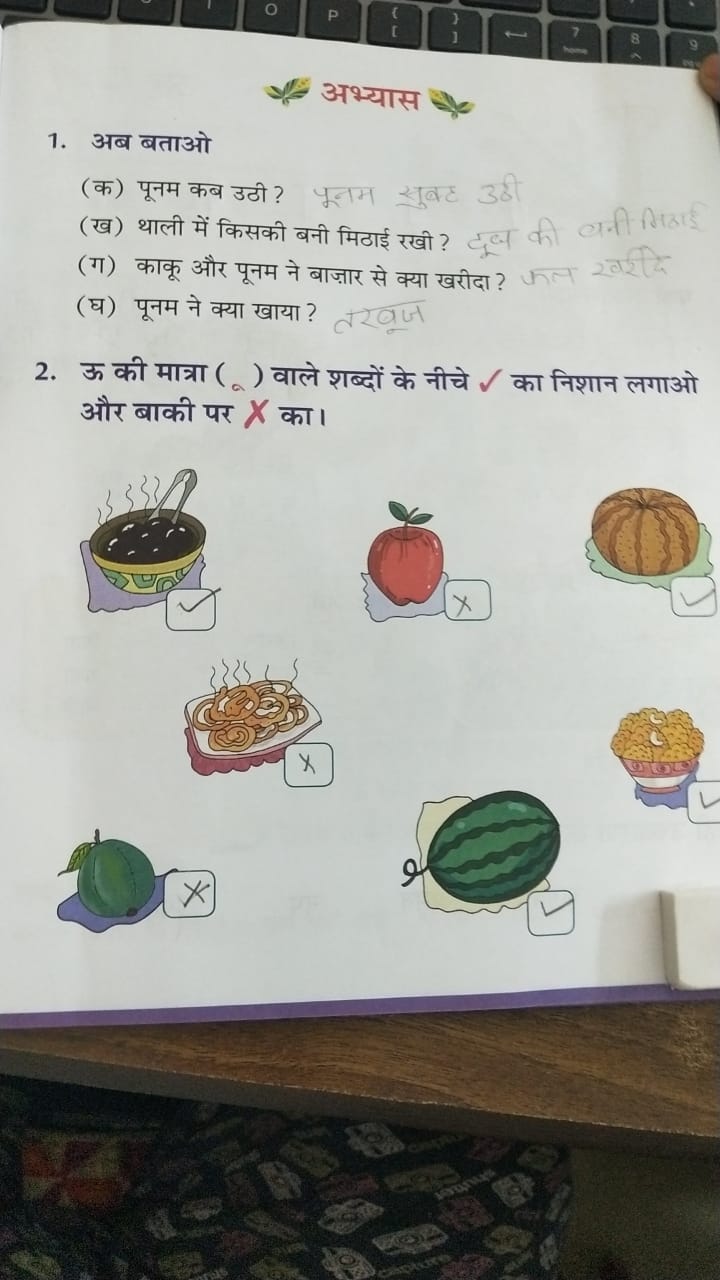 O P { [ } ] ← 7 home 8 ^ 9
अभ्यास
1. अब बताओ
(क) पूनम कब उठी? पूनम सुबह उठी
(ख) थाली में किसकी बनी मिठाई रखी? दूध की बनी मिठाई
(ग) काकू और पूनम ने बाज़ार से क्या खरीदा? फल खरीदे
(घ) पूनम ने क्या खाया? तरबूज
2. ऊ की मात्रा ( ू ) वाले शब्दों के नीचे ✓ का निशान लगाओ
और बाकी पर ✗ का।